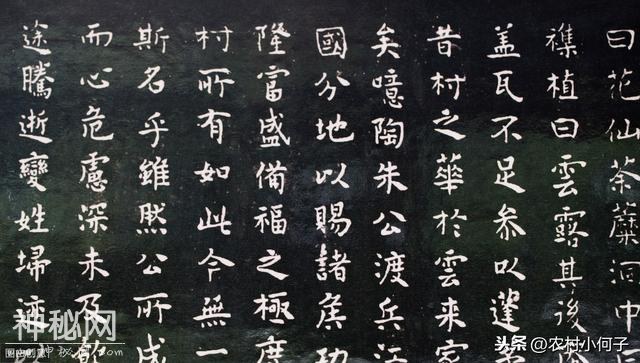 曰花仙荼蘼洞中
襍植曰雲露其後
盖瓦不足參以蓬
昔村之華於雲来
矣噫陶朱公渡兵
國分地以賜諸矦功
隆富盛備福之極度
村所有如此今無一
斯名乎雖然公所成
而心危慮深未及
途騰逝變姓埽迹
神秘网
图虫创意
头条 @农村小何子